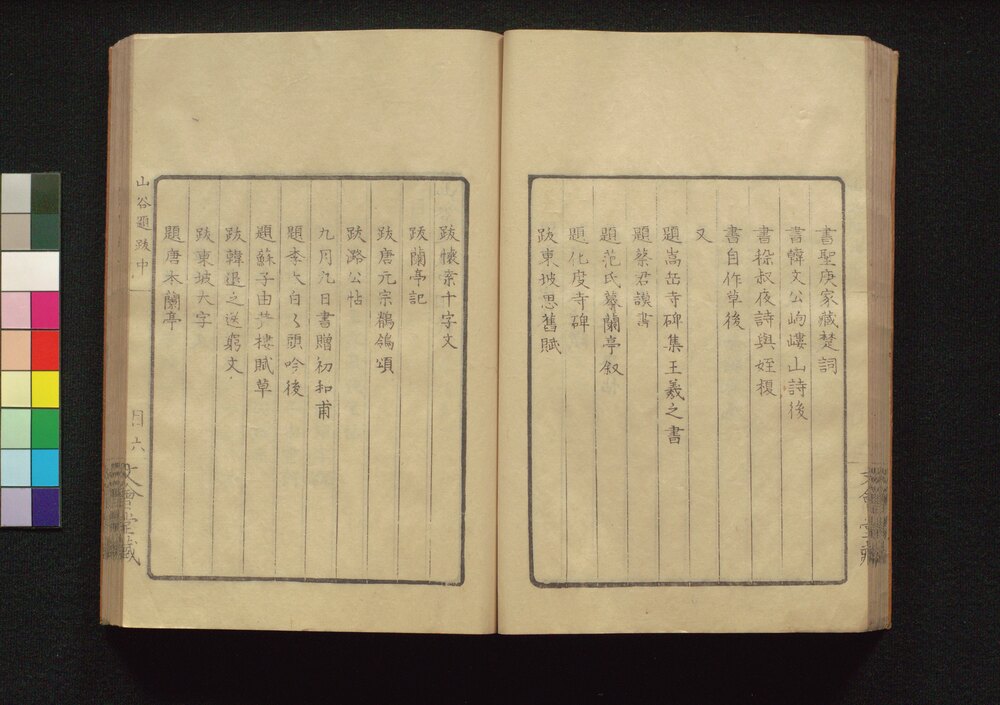 書聖庚家藏楚詞
書韓文公岣嶁山詩後
書嵇叔夜詩與姪榎
書自作草後
又
題嵩岳寺碑集王羲之書
題蔡君謨書
題范氏摹蘭亭叙
題化度寺碑
跋東坡思舊賦
跋懷素千字文
跋蘭亭記
跋唐元宗鶺鴒頌
跋潞公帖
九月九日書贈初和甫
題李太白白頭吟後
題蘇子由黃樓賦草
跋韓退之送窮文
跋東坡大字
題唐本蘭亭
山谷題跋中
目六
文會堂藏